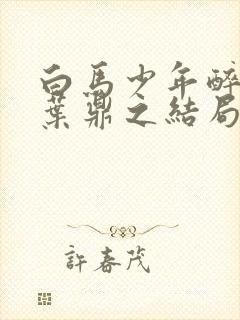 白馬少年醉
葉鼎之結局
許春茂